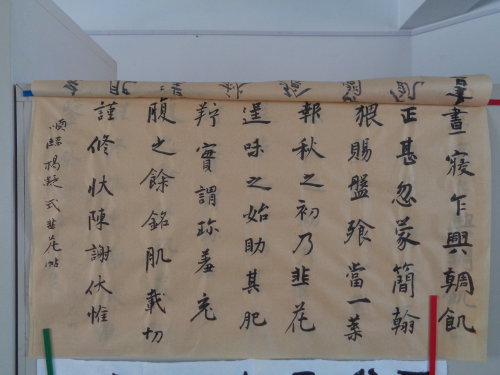 晝寢乍興輖飢
正甚忽蒙簡翰
猥賜盤飧當一葉
報秋之初乃韭花
逞味之始助其肥
羜實謂珍羞充
腹之餘銘肌載切
謹修狀陳謝伏惟
順臨楊凝式韭花帖